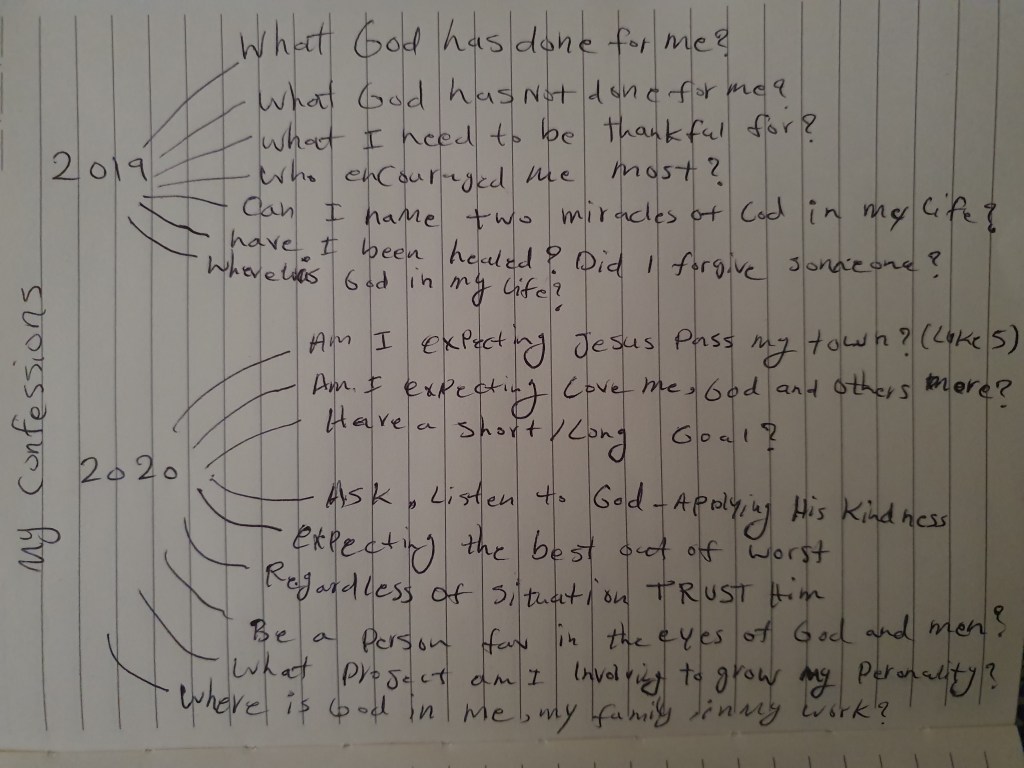 My Confessions
2019
What God has done for me?
What God has Not done for me?
What I need to be thankful for?
Who encouraged me most?
Can I name two miracles of God in my life?
have I been healed? Did I forgive someone?
Where is God in my life?
2020
Am I expecting Jesus Pass my town? (Luke 5)
Am I expecting Love me, God and others more?
Have a short/Long Goal?
Ask, Listen to God - Applying His Kindness
expecting the best out of worst
Regardless of situation TRUST Him
Be a person fav in the eyes of God and men?
What Project am I Involving to grow my Peronality?
Where is God in me, my family, in my work?